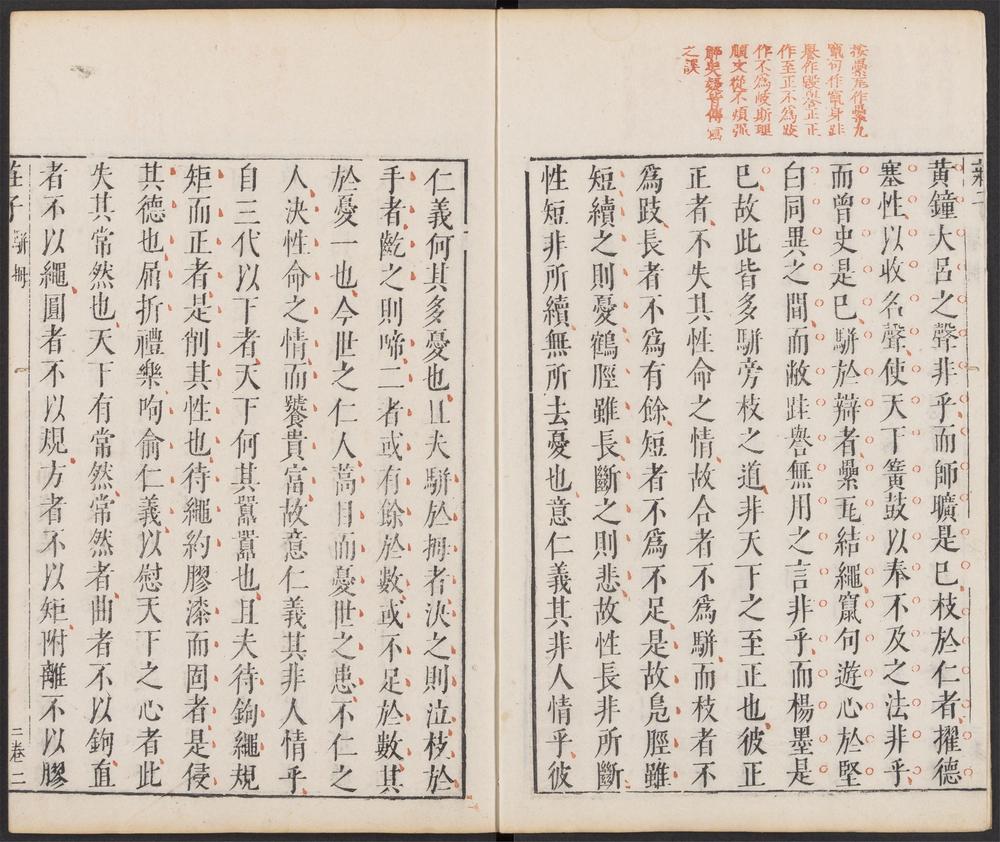 按纍瓦作纍丸
竄句作竄身跬
譽作毀譽至正
作至正不為跂
作不為岐斯理
順文從不煩強
解史疑皆傳寫
之誤
黃鐘大呂之聲非乎而師曠是已枝於仁者擢德
塞性以收名聲使天下簧鼓以奉不及之法非乎
而曾史是已駢於辯者纍瓦結繩竄句遊心於堅
白同異之間而敝跬譽無用之言非乎而楊墨是
已故此皆多駢旁枝之道非天下之至正也彼正
正者不失其性命之情故合者不為駢而枝者不
為跂長者不為有餘短者不為不足是故鳧脛雖
短續之則憂鶴脛雖長斷之則悲故性長非所斷
性短非所續無所去憂也意仁義其非人情乎彼
仁義何其多憂也且夫駢於拇者決之則泣枝於
手者齕之則啼二者或有餘於數或不足於數其
於憂一也今世之仁人蒿目而憂世之患不仁之
人決性命之情而饕貴富故意仁義其非人情乎
自三代以下者天下何其囂囂也且夫待鉤繩規
矩而正者是削其性也待繩約膠漆而固者是侵
其德也屈折禮樂呴俞仁義以慰天下之心者此
失其常然也天下有常然常然者曲者不以鉤直
者不以繩圓者不以規方者不以矩附離不以膠
莊子 駢拇 二卷二